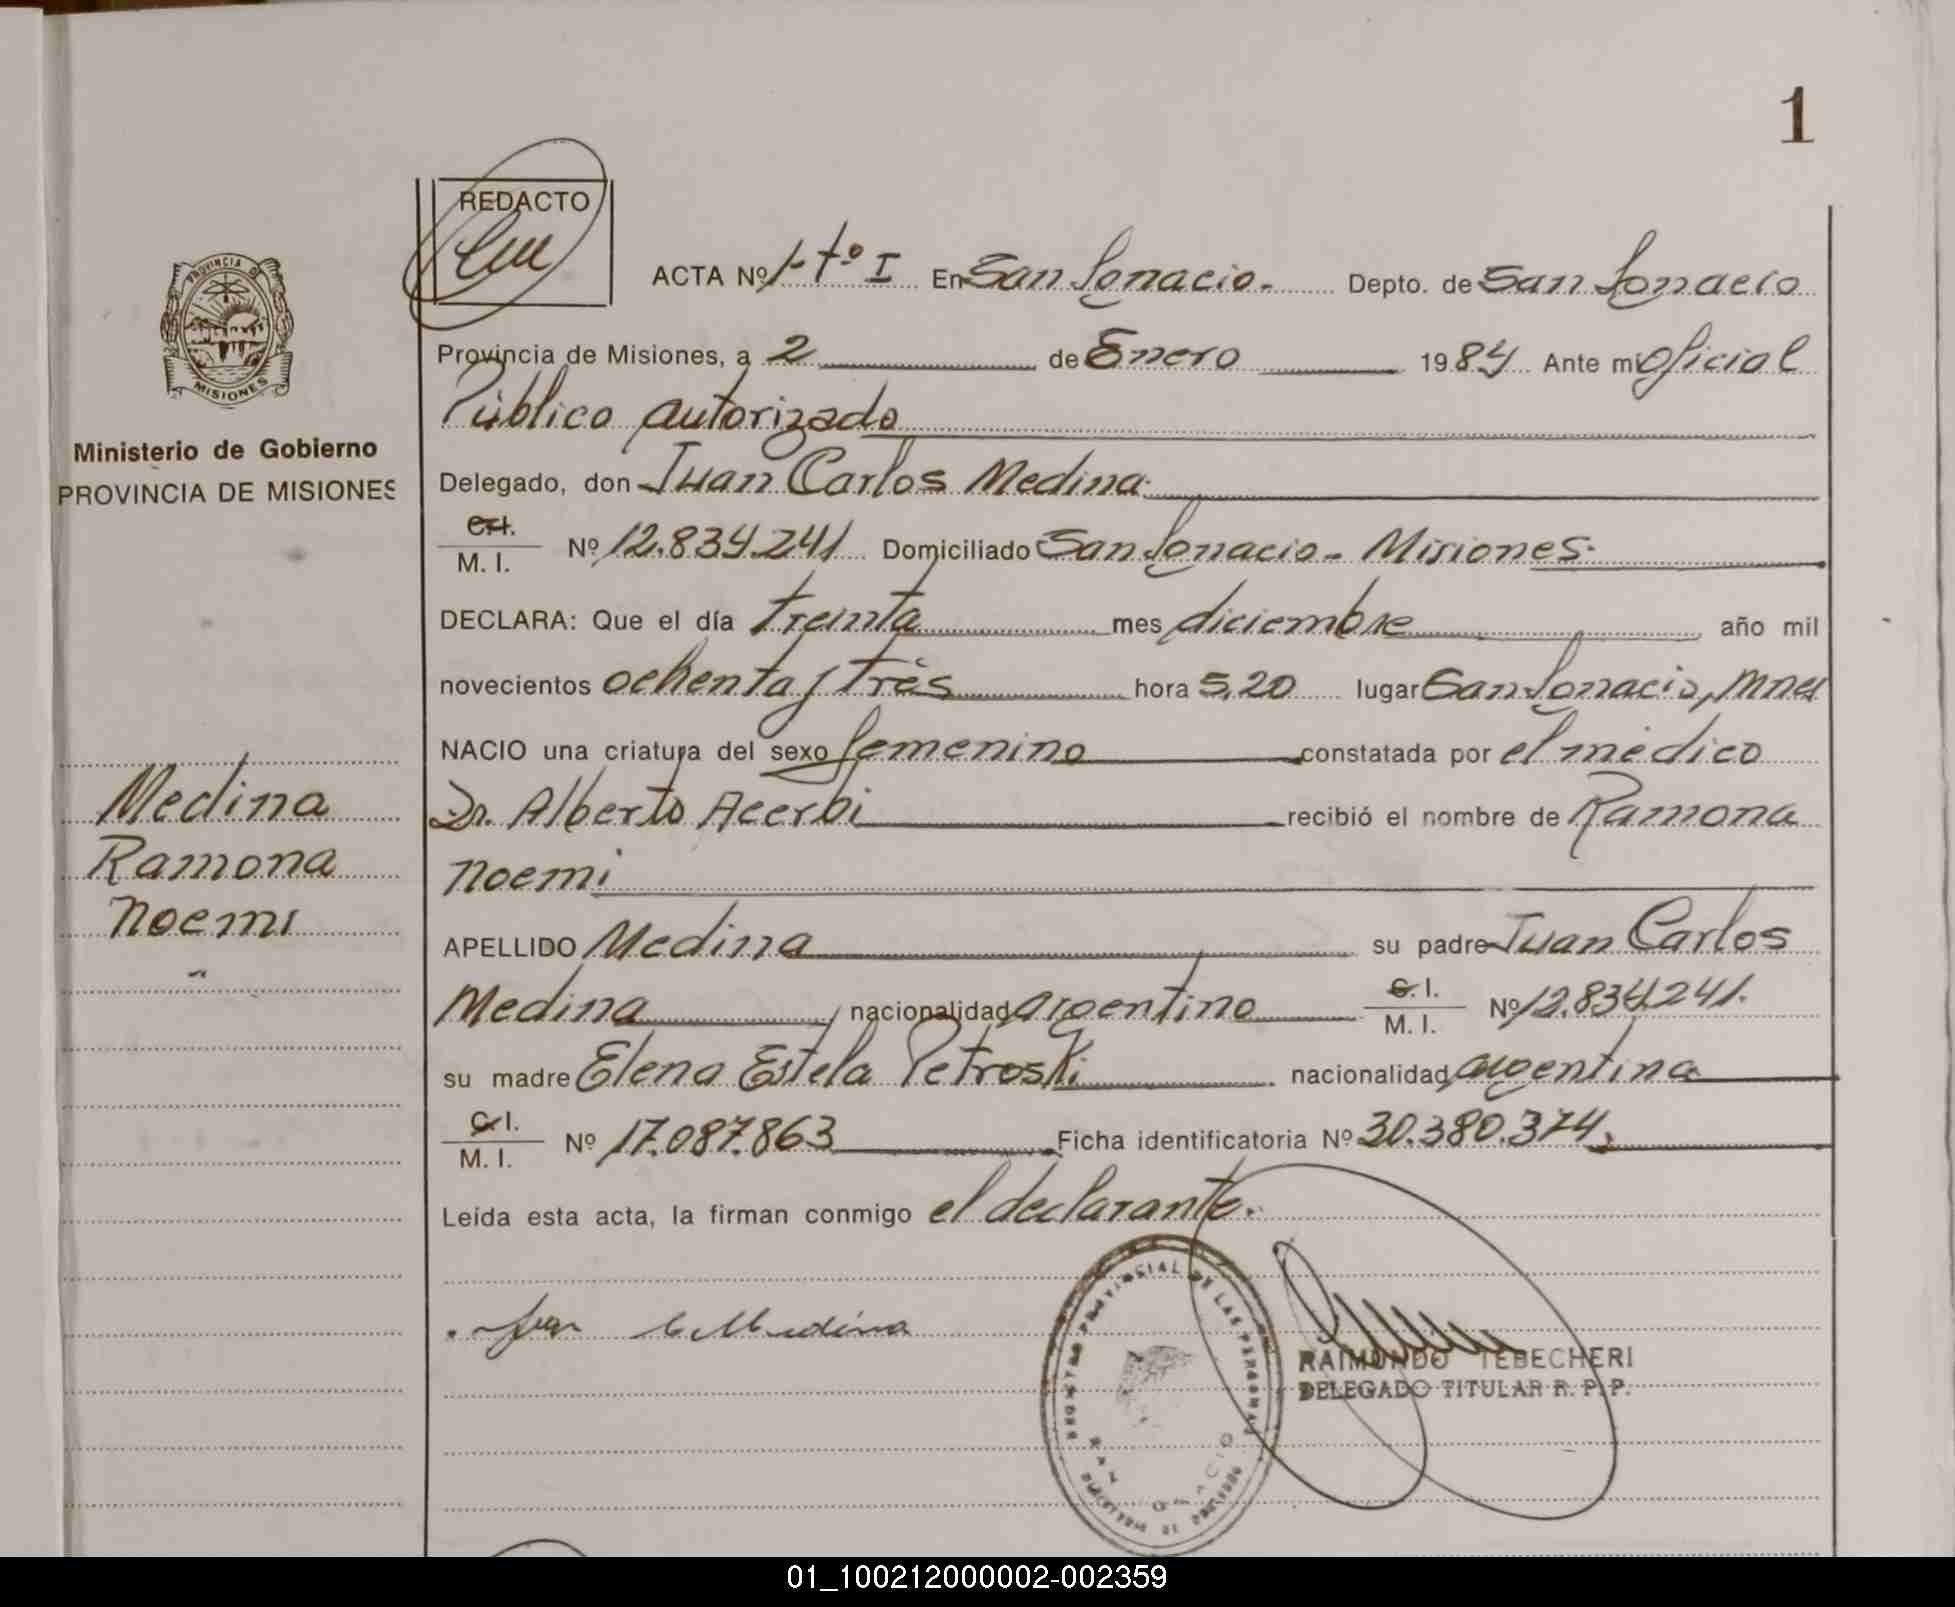 1
REDACTO
ACTA Nº 1-tº I En San Ignacio.- Depto. de San Ignacio
Provincia de Misiones, a 2 de Enero 1984 Ante mi Oficial
Público autorizado
Delegado, don Juan Carlos Medina
C.I. M. I. Nº 12.834.241 Domiciliado San Ignacio.- Misiones.
DECLARA: Que el día treinta mes diciembre año mil
novecientos ochenta y tres hora 5,20 lugar San Ignacio, Mnes
NACIO una criatura del sexo femenino constatada por el médico
Dr. Alberto Acerbi recibió el nombre de Ramona
Noemi
APELLIDO Medina su padre Juan Carlos
Medina, nacionalidad argentino C. I. M. I. Nº 12.834.241.
su madre Elena Estela Petroski nacionalidad argentina
C. I. M. I. Nº 17.087.863 Ficha identificatoria Nº 30.380.374.
Leída esta acta, la firman conmigo el declarante.
Juan C Medina
REGISTRO PROVINCIAL DE LAS PERSONAS
RAIMUNDO TEBECHERI
DELEGADO TITULAR R. P. P.
PROVINCIA DE
MISIONES
Ministerio de Gobierno
PROVINCIA DE MISIONES
Medina
Ramona
Noemi
01_100212000002-002359